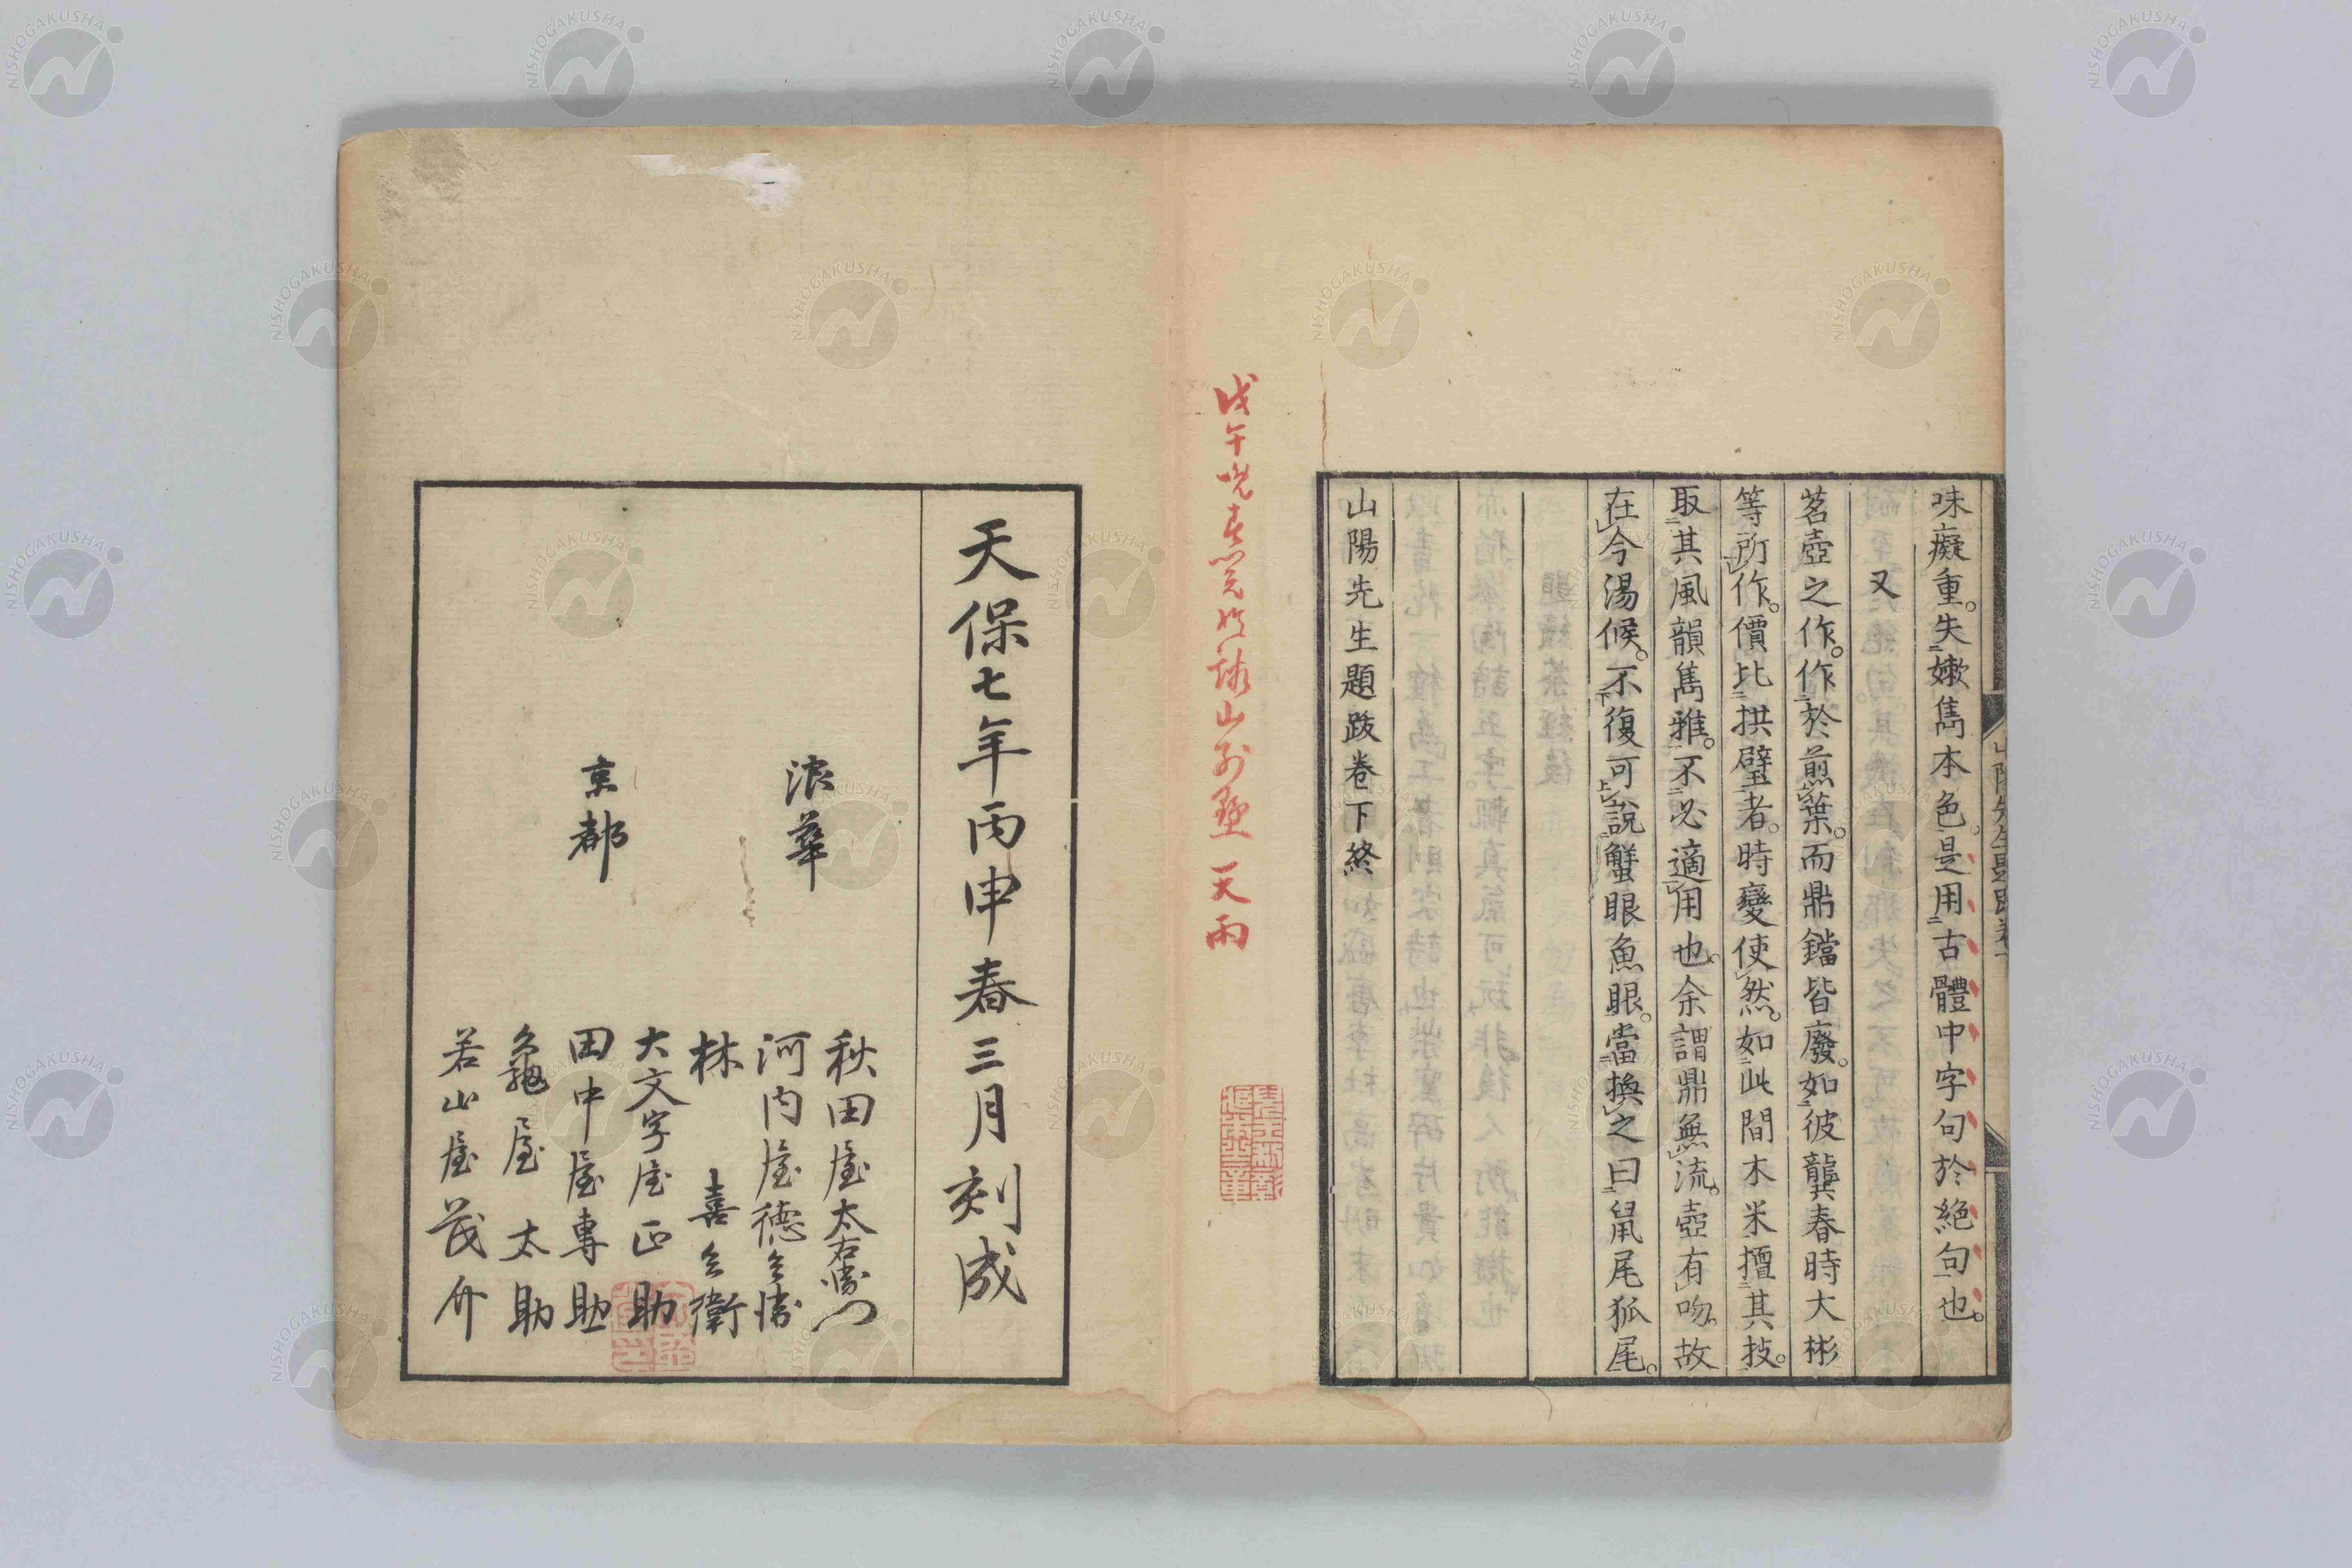 味癡重。失嫩雋本色。是用古體中字句於絕句也。
又
茗壺之作。作於煎葉。而鼎鐺皆廢。如彼龔春時大彬
等所作。價比拱璧者。時變使然。如此間木米擅其技。
取其風韻雋雅。不必適用也。余謂鼎無流。壺有吻。故
在今湯候。不復可說蟹眼魚眼。當換之曰鼠尾狐尾。
山陽先生題跋卷下終
天雨
天保七年丙申春三月刻成
浪華
秋田屋太右衛門
河内屋德兵衛
林 喜兵衛
京都
大文字屋正助
田中屋專助
龜屋太助
若山屋茂介
NISHOGAKUSHA